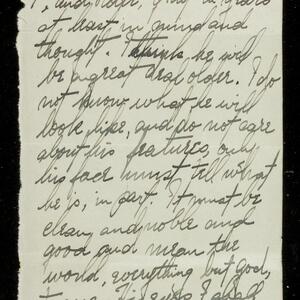 I, and older, gray in years
at least in mind and
thought. I think he will
be a great deal older. I do
not know what he will
look like, and do not care
about his features, only
his face must tell what
he is, in part. It must be
clean and noble and
good and mean the
world, everything but God,
to me. His eyes I